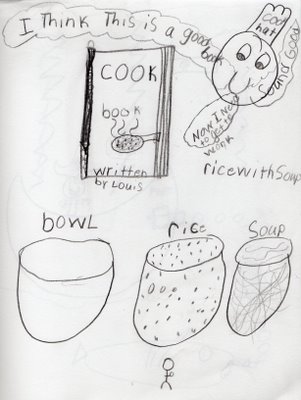 I Think This is a good book
and Good
Cook
hat
COOK
book
written
by Louis
Now I need
to get to
work
rice with Soup
bowl
rice
Soup